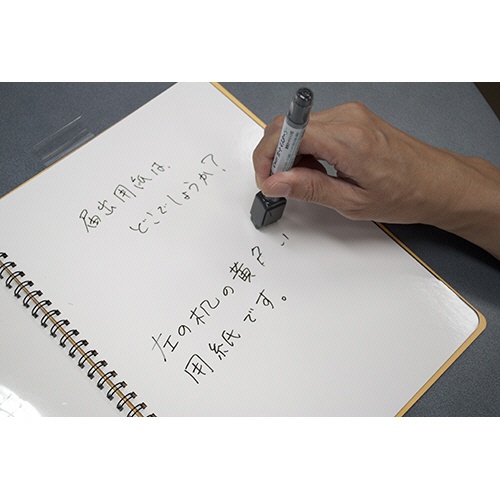 届出用紙は、
どこでしょうか?
左の机の黄色い
用紙です。